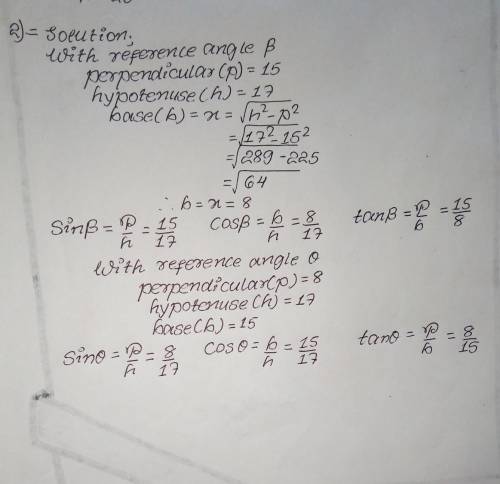 2) = Solution;
With reference angle β
perpendicular(p) = 15
hypotenuse(h) = 17
base(b) = x = √h²-p²
= √17²-15²
= √289 -225
= √64
∴ b = x = 8
Sinβ = p/h = 15/17 cosβ = b/h = 8/17 tanβ = p/b = 15/8
With reference angle θ
perpendicular(p) = 8
hypotenuse(h) = 17
base(b) = 15
Sinθ = p/h = 8/17 cosθ = b/h = 15/17 tanθ = p/b = 8/15